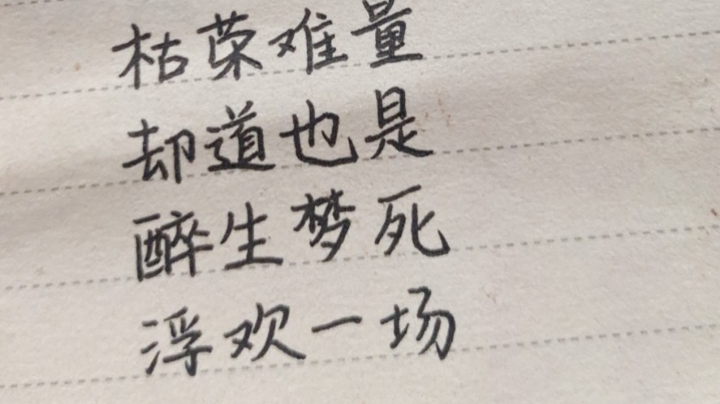 枯荣难量
却道也是
醉生梦死
浮欢一场